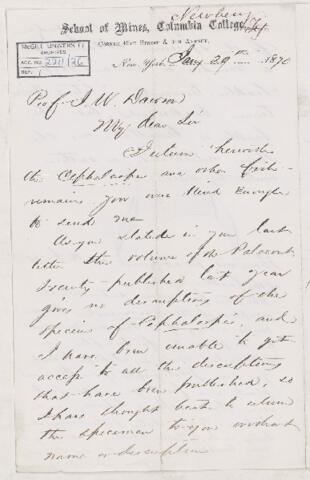 Newberry
School of Mines, Columbia College,
Corner 49th Street & 4th Avenue,
McGILL UNIVERSITY
ARCHIVES
ACC. NO. 2211/26
REF.
New York, Jany 29th 1870
Prof J. W. Dawson
My dear Sir
I return herewith
the Cephalaspis and other fish-
remains you were kind enough
to send me
As you stated in your last
letter the volume of the Palaeont.
Society published last year
gives no descriptions of the
species of Cephalaspis, and
I have been unable to get
access to all the descriptions
that have been published, so
I have thought best to return
the specimen to you without
name or description